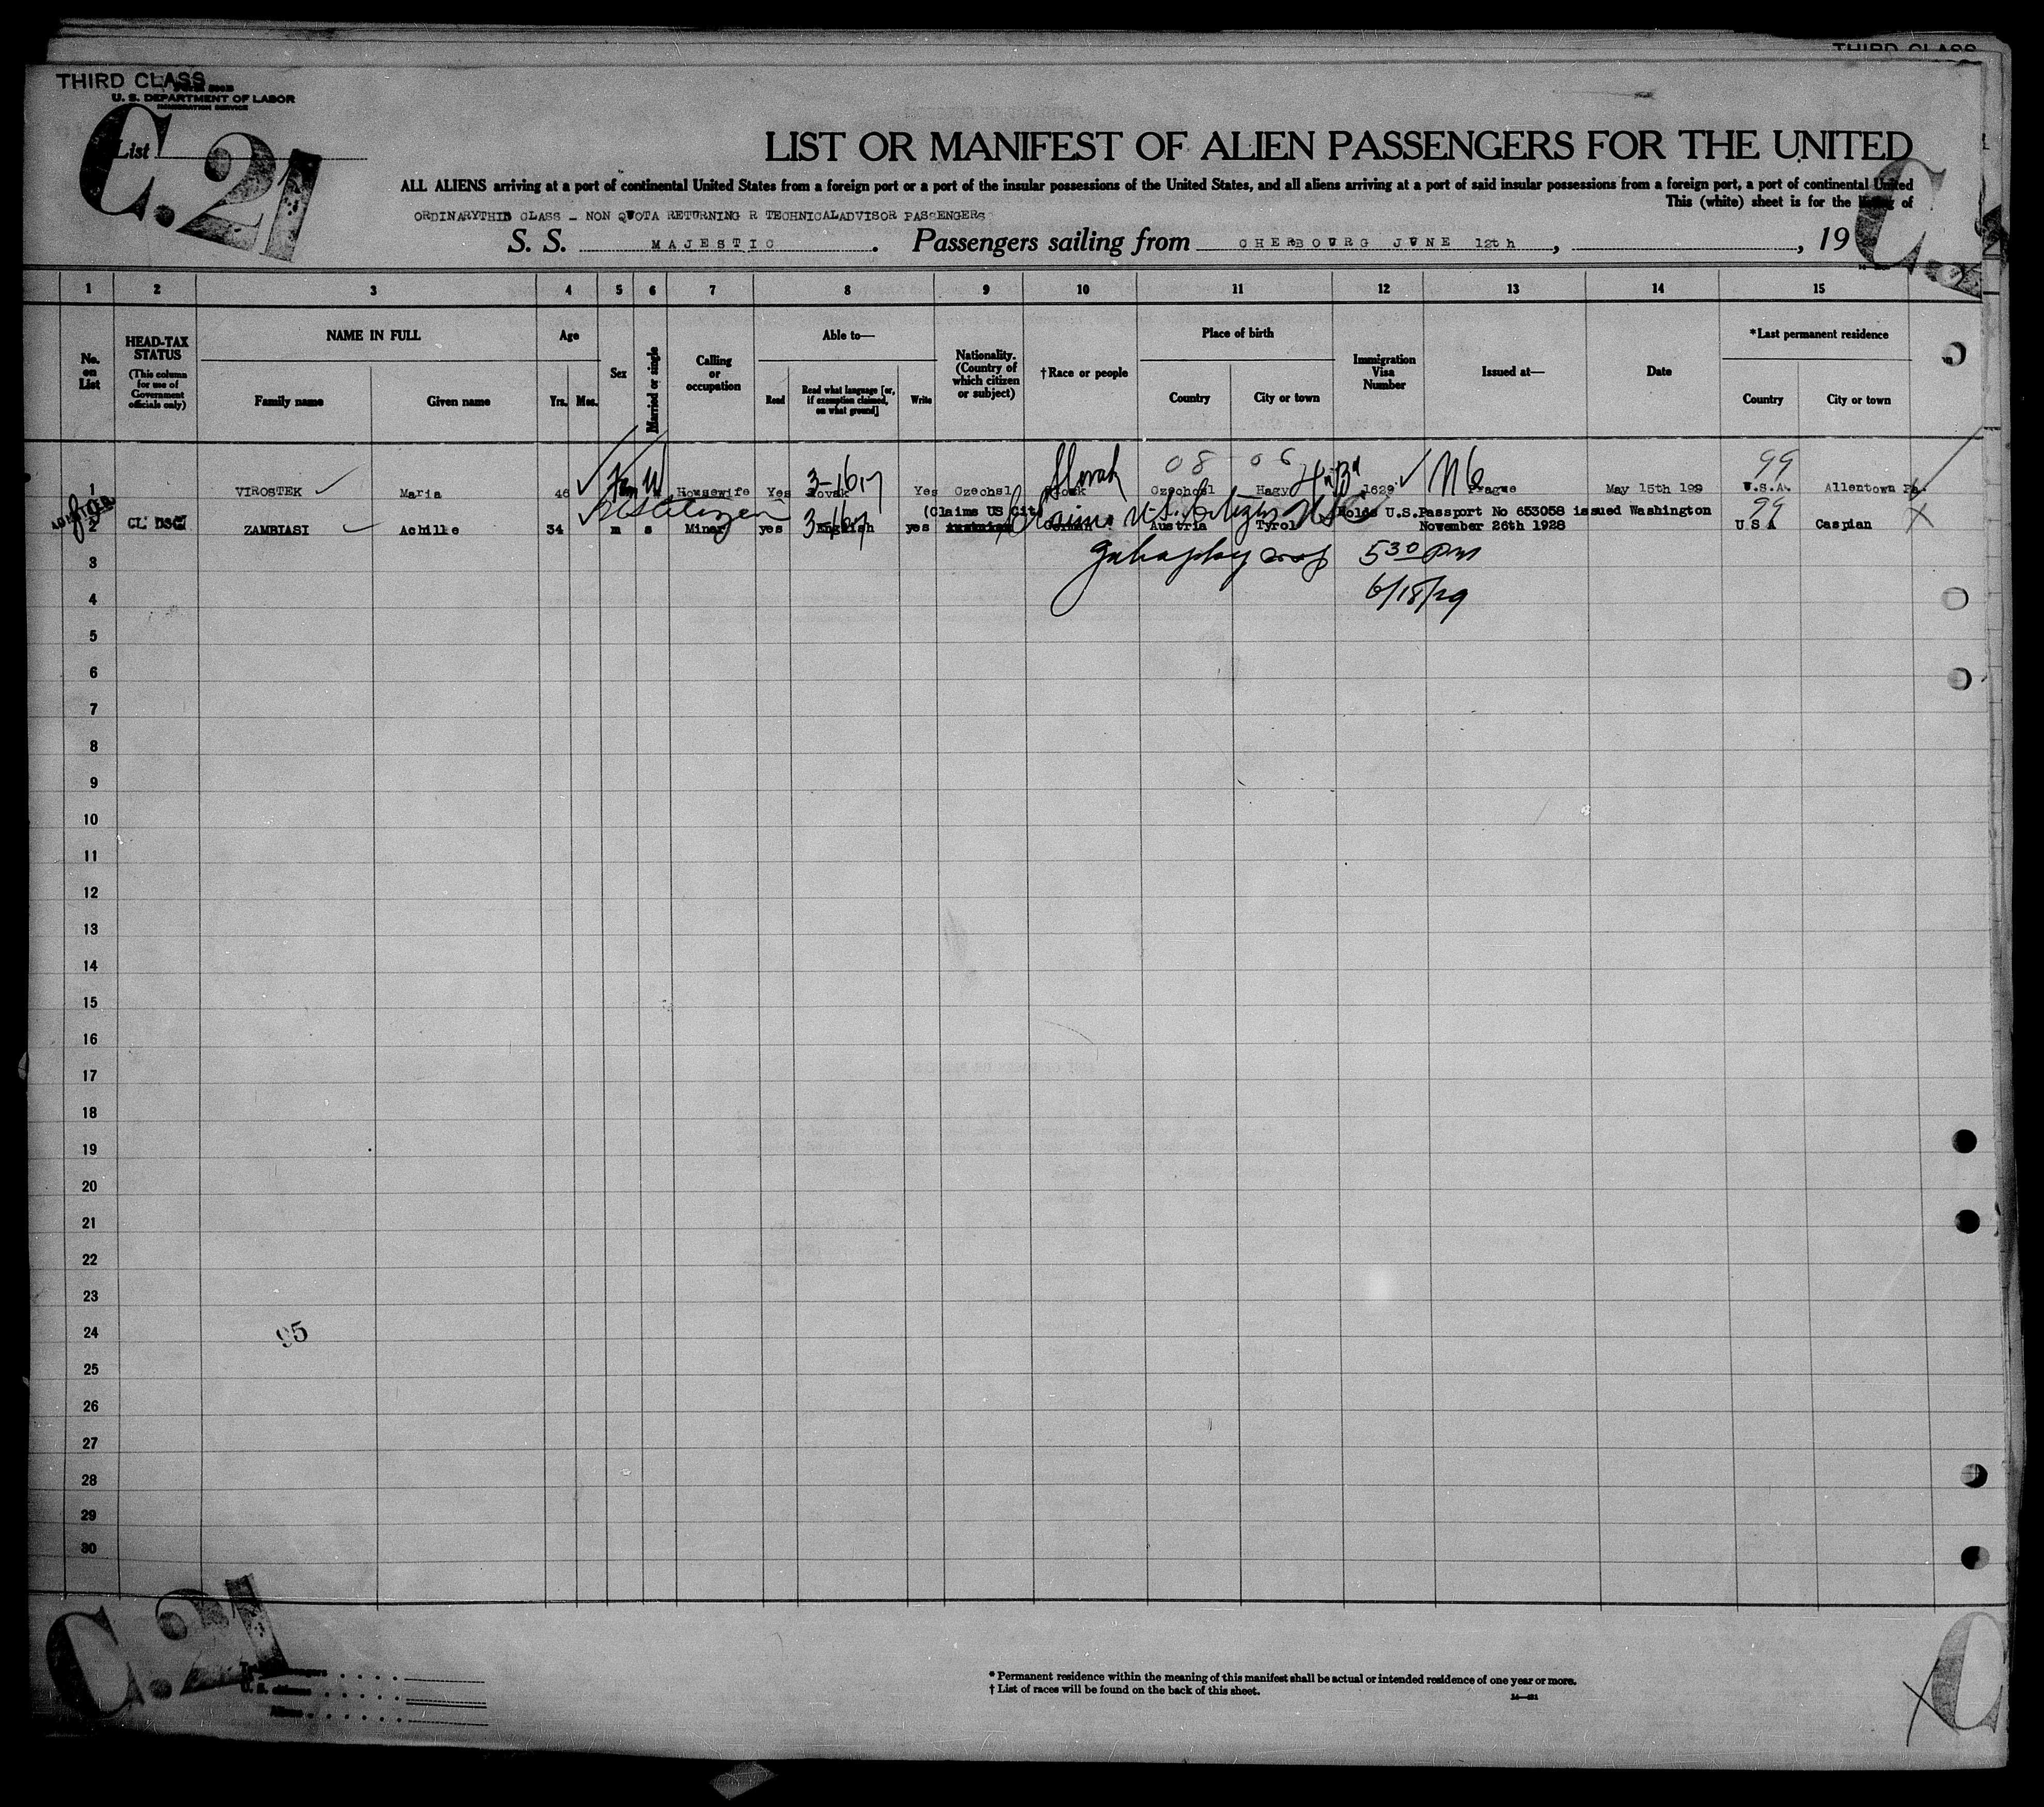 THIRD CLASS
THIRD CLASS
U. S. DEPARTMENT OF LABOR
IMMIGRATION SERVICE
C.21
List
LIST OR MANIFEST OF ALIEN PASSENGERS FOR THE UNITED
ALL ALIENS arriving at a port of continental United States from a foreign port or a port of the insular possessions of the United States, and all aliens arriving at a port of said insular possessions from a foreign port, a port of continental United
This (white) sheet is for the listing of
ORDINARYTHID CLASS - NON QUOTA RETURNING R TECHNICALADVISOR PASSENGERS
S. S. MAJESTIC. Passengers sailing from CHERBOURG JUNE 12th, , 19
C.2
1 2 3 4 5 6 7 8 9 10 11 12 13 14 15
No. on List
HEAD-TAX STATUS
(This column for use of Government officials only)
NAME IN FULL
Family name Given name
Age
Yrs. Mos.
Sex
Married or single
Calling or occupation
Able to—
Read Read what language [or, if exemption claimed, on what ground] Write
Nationality. (Country of which citizen or subject)
†Race or people
Place of birth
Country City or town
Immigration Visa Number
Issued at—
Date
*Last permanent residence
Country City or town
Slovak 08 06 99
1 VIROSTEK Maria 46 Housewife Yes Yes Czechsl Czechosl Hagy 1629 Prague May 15th 199 U.S.A. Allentown Pa.
ADMITTED
US Citizen (Claims US Cit) Claims U.S. Citizen Holds U.S.Passport No 653058 issued Washington 99
2 ZAMBIASI Achille 34 m s Miner yes English yes German Austria Tyrol November 26th 1928 U S A Caspian
3 5 30 pm
4 6/18/29
5
6
7
8
9
10
11
12
13
14
15
16
17
18
19
20
21
22
23
24 95
25
26
27
28
29
30
C.21
Total passengers
U. S. citizens
Aliens
* Permanent residence within the meaning of this manifest shall be actual or intended residence of one year or more.
† List of races will be found on the back of this sheet.
C